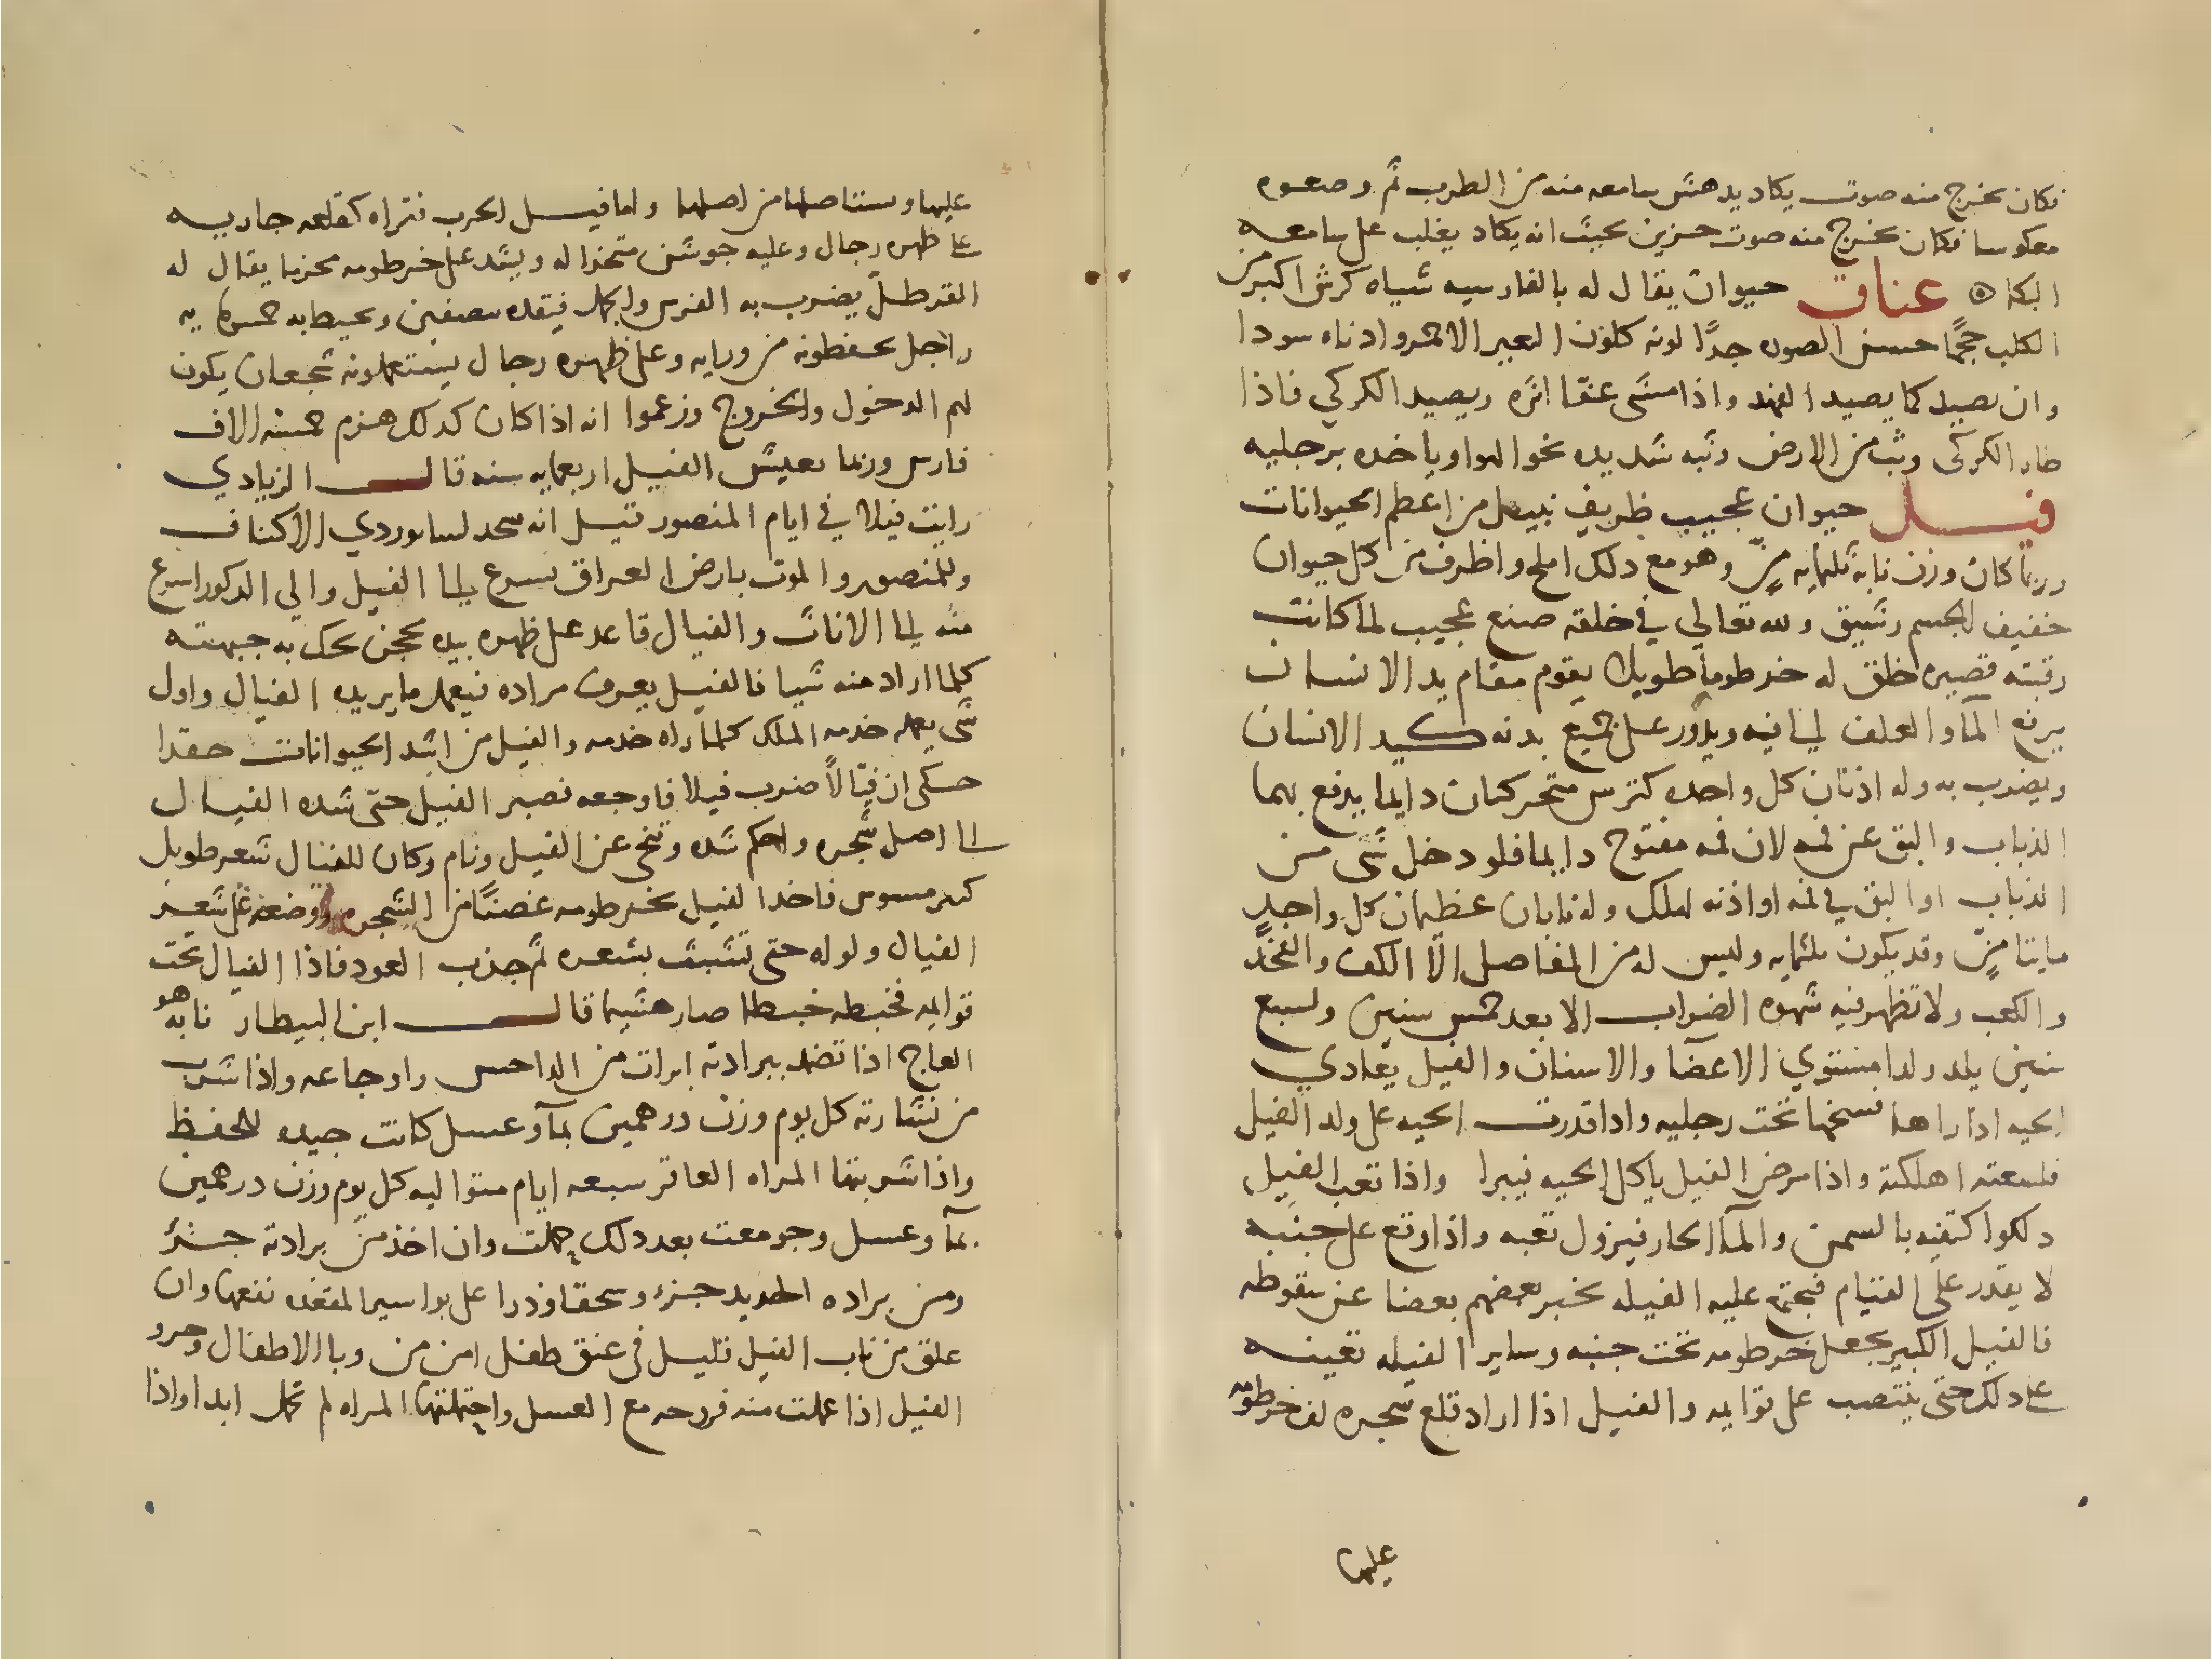 فكان يخرج منه صوت يكاد يدهش سامعه منه من الطرب ثم وضعوه
معكوسا فكان يخرج منه صوت حزين بحيث انه يكاد يغلب على سامعه
البكا عناق حيوان يقال له بالفارسيه شياه كوش اكبر من
الكلب حجمًا حسن الصوره جدًا لونه كلون البعير الاحمر واذناه سودا
وان يصيد كما يصيد الفهد واذا مشى عفّا اثره ويصيد الكركي فاذا
طار الكركي وثب من الارض وثبه شديده نحو الهوا وياخده برجليه
فيل حيوان عجيب ظريف نبيل من اعظم الحيوانات
وربما كان وزن نابه ثلثمايه منّ وهو مع دلك املح واظرف من كل حيوان
خفيف الجسم رشيق ولله تعالي في خلقه صنع عجيب لما كانت
رقبته قصيره خلق له خرطوما طويلا يقوم مقام يد الانسان
يرفع المآ والعلف الى فيه ويدور على جميع بدنه كيد الانسان
ويضرب به وله اذنان كل واحده كترس متحركتان دايما يدفع بهما
الذباب والبق عن فمه لان فمه مفتوح دايما فلو دخل شى من
الذباب او البق في فمه او اذنه لهلك وله نابان عظيمان كل واحدٍ
مايتا منٍّ وقد يكون ثلثمايه وليس له من المفاصل الّا الكتف والفخد
والكعب ولا تظهر فيه شهوه الضراب الا بعد خمس سنين ولسبع
سنين يلد ولدا مستوي الاعضآ والاسنان والفيل يعادي
الحيه اذا راها فسخها تحت رجليه واذا قدرت الحيه على ولد الفيل
فلسعته اهلكته واذا مرض الفيل ياكل الحيه فيبرا واذا تعب الفيل
دلكوا كتفيه بالسمن والمآ الحار فيزول تعبه واذا وقع على جنبه
لا يقدر على القيام فيجتمع عليه الفيله يخبر بعضهم بعضا عن سقوطه
فالفيل الكبير يجعل خرطومه تحت جنبه وساير الفيله تعينه
على دلك حتى ينتصب على قوايمه والفيل اذا اراد قلع شجره لف خرطومه
عليها
عليها وستاصلها من اصلها واما فيل الحرب فتراه كقلعه جاريه
على ظهره رجال وعليه جوشن متخذا له ويشد على خرطومه يقال له
القرطل يضرب به الفرس والجمل فيقده نصفين ويحيط به خمسمايه
راجل يحفظونه من ورايه وعلى ظهره رجال يستعملونه شجعان يكون
لهم الدخول والخروج وزعموا انه اذا كان كدلك هزم خمسه الاف
فارس وربما يعيش الفيل اربعمايه سنه قال الزيادي
رايت فيلا في ايام المنصور قيل انه سجد لسابور ذي الاكتاف
وللمنصور والموت بارض العراق يسرع الى الفيل والي الدكور اسرع
منه الى الاناث والفيال قاعد على ظهره بيده محجن يحك به جبهته
كلما اراد منه شيا فالفيل يعرف مراده فيعمل ما يريده الفيال واول
شي يعمله خدمه الملك كلما راه خدمه والفيل من اشد الحيوانات حقدا
حكى ان فيّالاً ضرب فيلا فاوجعه فصبر الفيل حتى شده الفيال
الى اصل شجره واحكم شده وتنحى عن الفيل ونام وكان للفيال شعر طويل
فاخد الفيل بخرطومه غصنًا من الشجره ووضعه على شعر
الفيال ولواه حتى تشبث بشعره ثم جذب العود فاذا الفيال تحت
قوايمه فخبطه خبطا صار هشيما قال ابن البيطار نابه هو
العاج اذا تضمد ببرادته ابرات من الداحس واوجاعه واذا شرب
من نشارته كل يوم وزن درهمين بمآ وعسل كانت جيده للحفظ
واذا شربتها المراه العاقر سبعه ايام متواليه كل يوم وزن درهمين
بمآ وعسل وجومعت بعد دلك حملت وان اخذ من برادته جزء
ومن براده الحديد جزء وسحقا وذرا على بواسير المقعده نفعها وان
علق من ناب الفيل قليل في عنق طفل امن من وبا الاطفال وخرو
الفيل اذا عملت منه فرزجه مع العسل واحتملتها المراه لم تحمل ابدا واذا